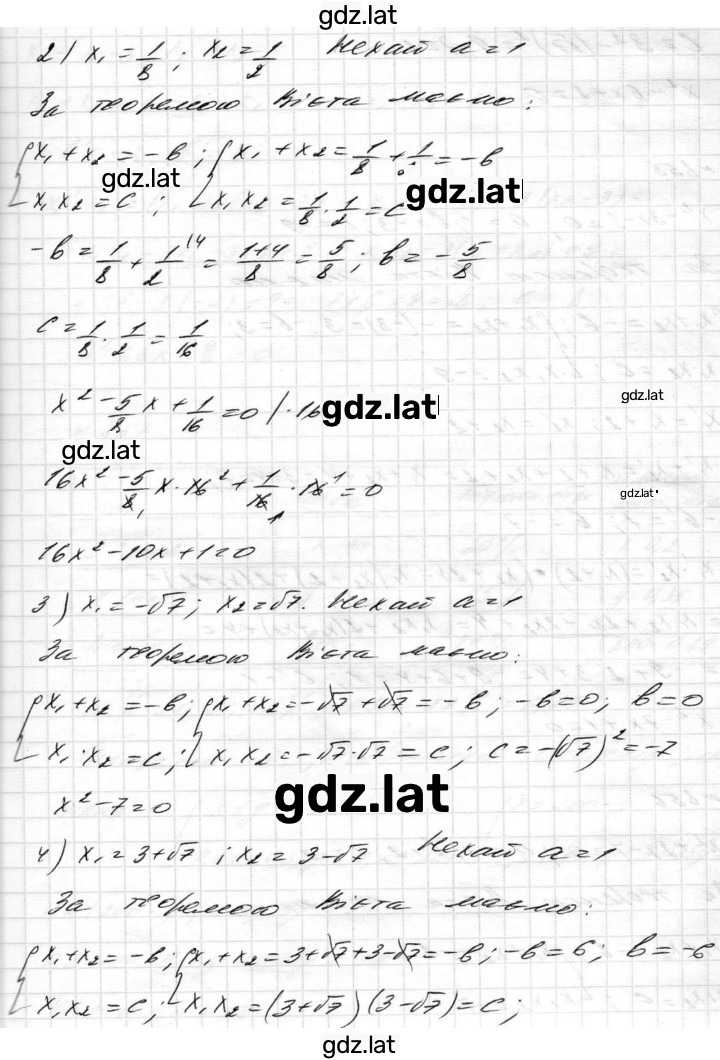 gdz.lat
2) x₁ = 1/8 ; x₂ = 1/2 Нехай a = 1
За теоремою Вієта маємо:
{ x₁ + x₂ = -b ; { x₁ + x₂ = 1/8 + 1/2 = -b
gdz.lat gdz.lat
x₁ x₂ = c ; x₁ x₂ = 1/8 · 1/2 = c
-b = 1/8 + 1/2 \4 = 1+4/8 = 5/8 ; b = - 5/8
c = 1/8 · 1/2 = 1/16
gdz.lat
x² - 5/8 x + 1/16 = 0 | · 16 gdz.lat
gdz.lat
16x² - 5/8 x · 16 ² + 1/16 · 16 ¹ = 0 gdz.lat
16x² - 10x + 1 = 0
3) x₁ = -√7 ; x₂ = √7. Нехай a = 1
За теоремою Вієта маємо:
{ x₁ + x₂ = -b ; { x₁ + x₂ = -√7 + √7 = -b ; -b = 0 ; b = 0
x₁ · x₂ = c ; x₁ x₂ = -√7 · √7 = c ; c = -(√7)² = -7
x² - 7 = 0 gdz.lat
4) x₁ = 3 + √7 ; x₂ = 3 - √7 Нехай a = 1
За теоремою Вієта маємо:
{ x₁ + x₂ = -b ; { x₁ + x₂ = 3 + √7 + 3 - √7 = -b ; -b = 6 ; b = -6
x₁ x₂ = c ; x₁ x₂ = (3 + √7)(3 - √7) = c ;
gdz.lat